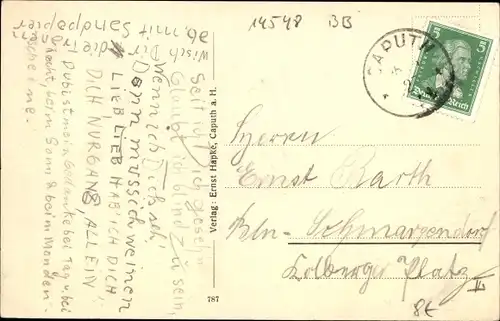 14548 BB
CAPUTH
5 5
Deutsches Reich
Seit ich Dich gesehn
Glaubt ich blind zu sein,
Wenn ich Dich seh'
Dann muss ich weinen
LIEB, LIEB HAB' ICH DICH
DICH NUR GANS, ALLEIN
Du bist mein Gedanke bei Tag u. bei
Nacht, beim Sonn & beim Monden-
scheine.
Wisch Dir die Tränen
ab, mit Sandpapier
Verlag: Ernst Hapke, Caputh a. H.
787
Herrn
Ernst Barth
Bln- Schmargendorf
Kolberger Platz
II
8€